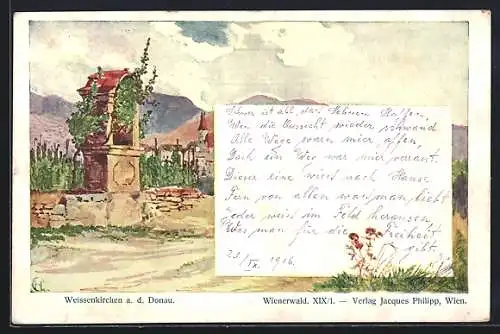 Schwer ist all das Sehnen Hoffen,
Wem die Aussicht wieder schwand
Alle Wege waren mir offen,
Doch ein Weg war mir verrannt.
Dieser eine wies nach Hause
Fern von allen was man liebt
oder weiss im Feld heraussen
Was man für die Freiheit gibt.
23/IX. 1916.
Weissenkirchen a. d. Donau.
Wienerwald. XIX/1. — Verlag Jacques Philipp, Wien.